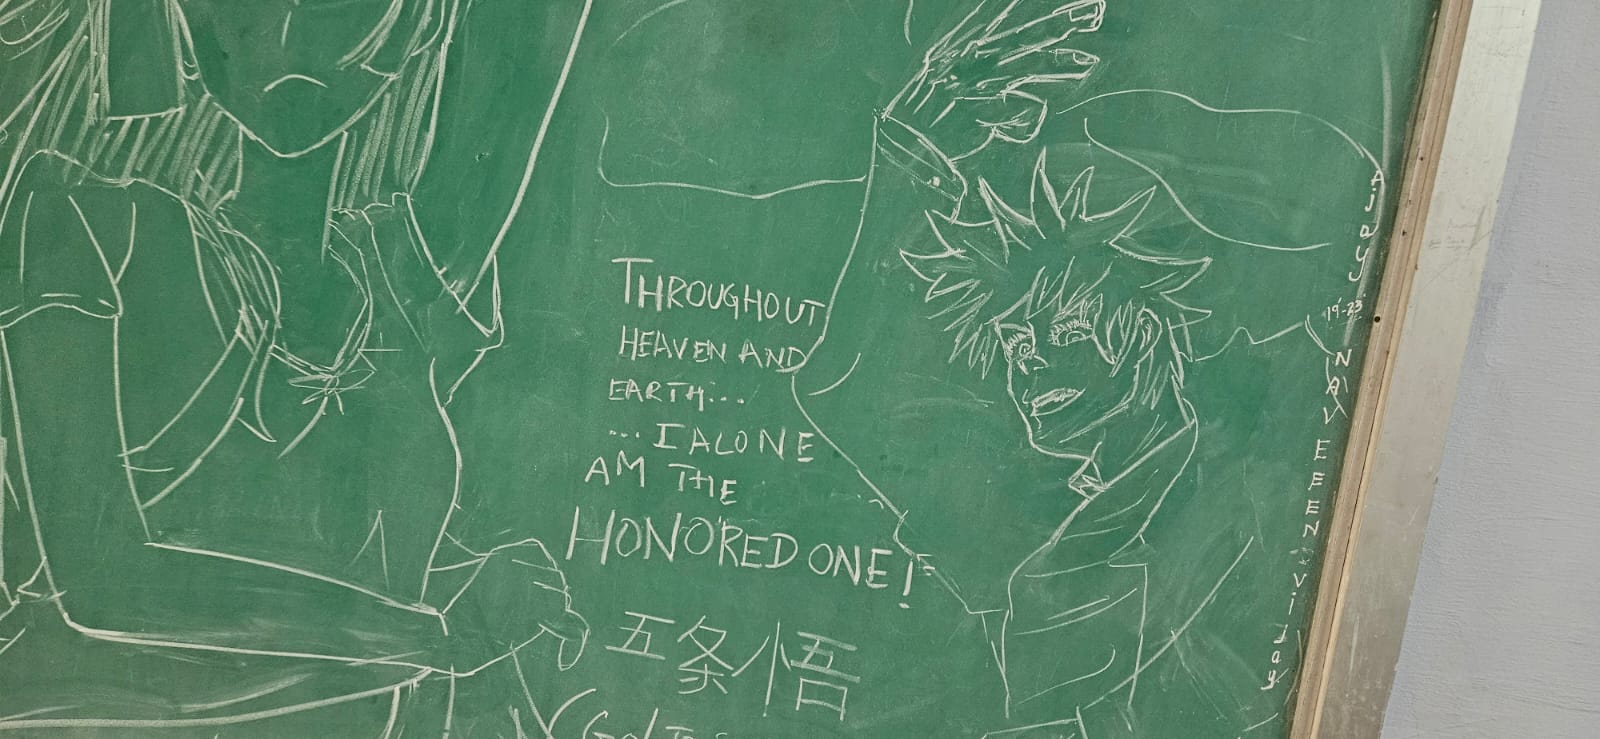 THROUGHOUT
HEAVEN AND
EARTH...
...I ALONE
AM THE
HONORED ONE!
五条悟
19-23
NAVEEEN
Vijay